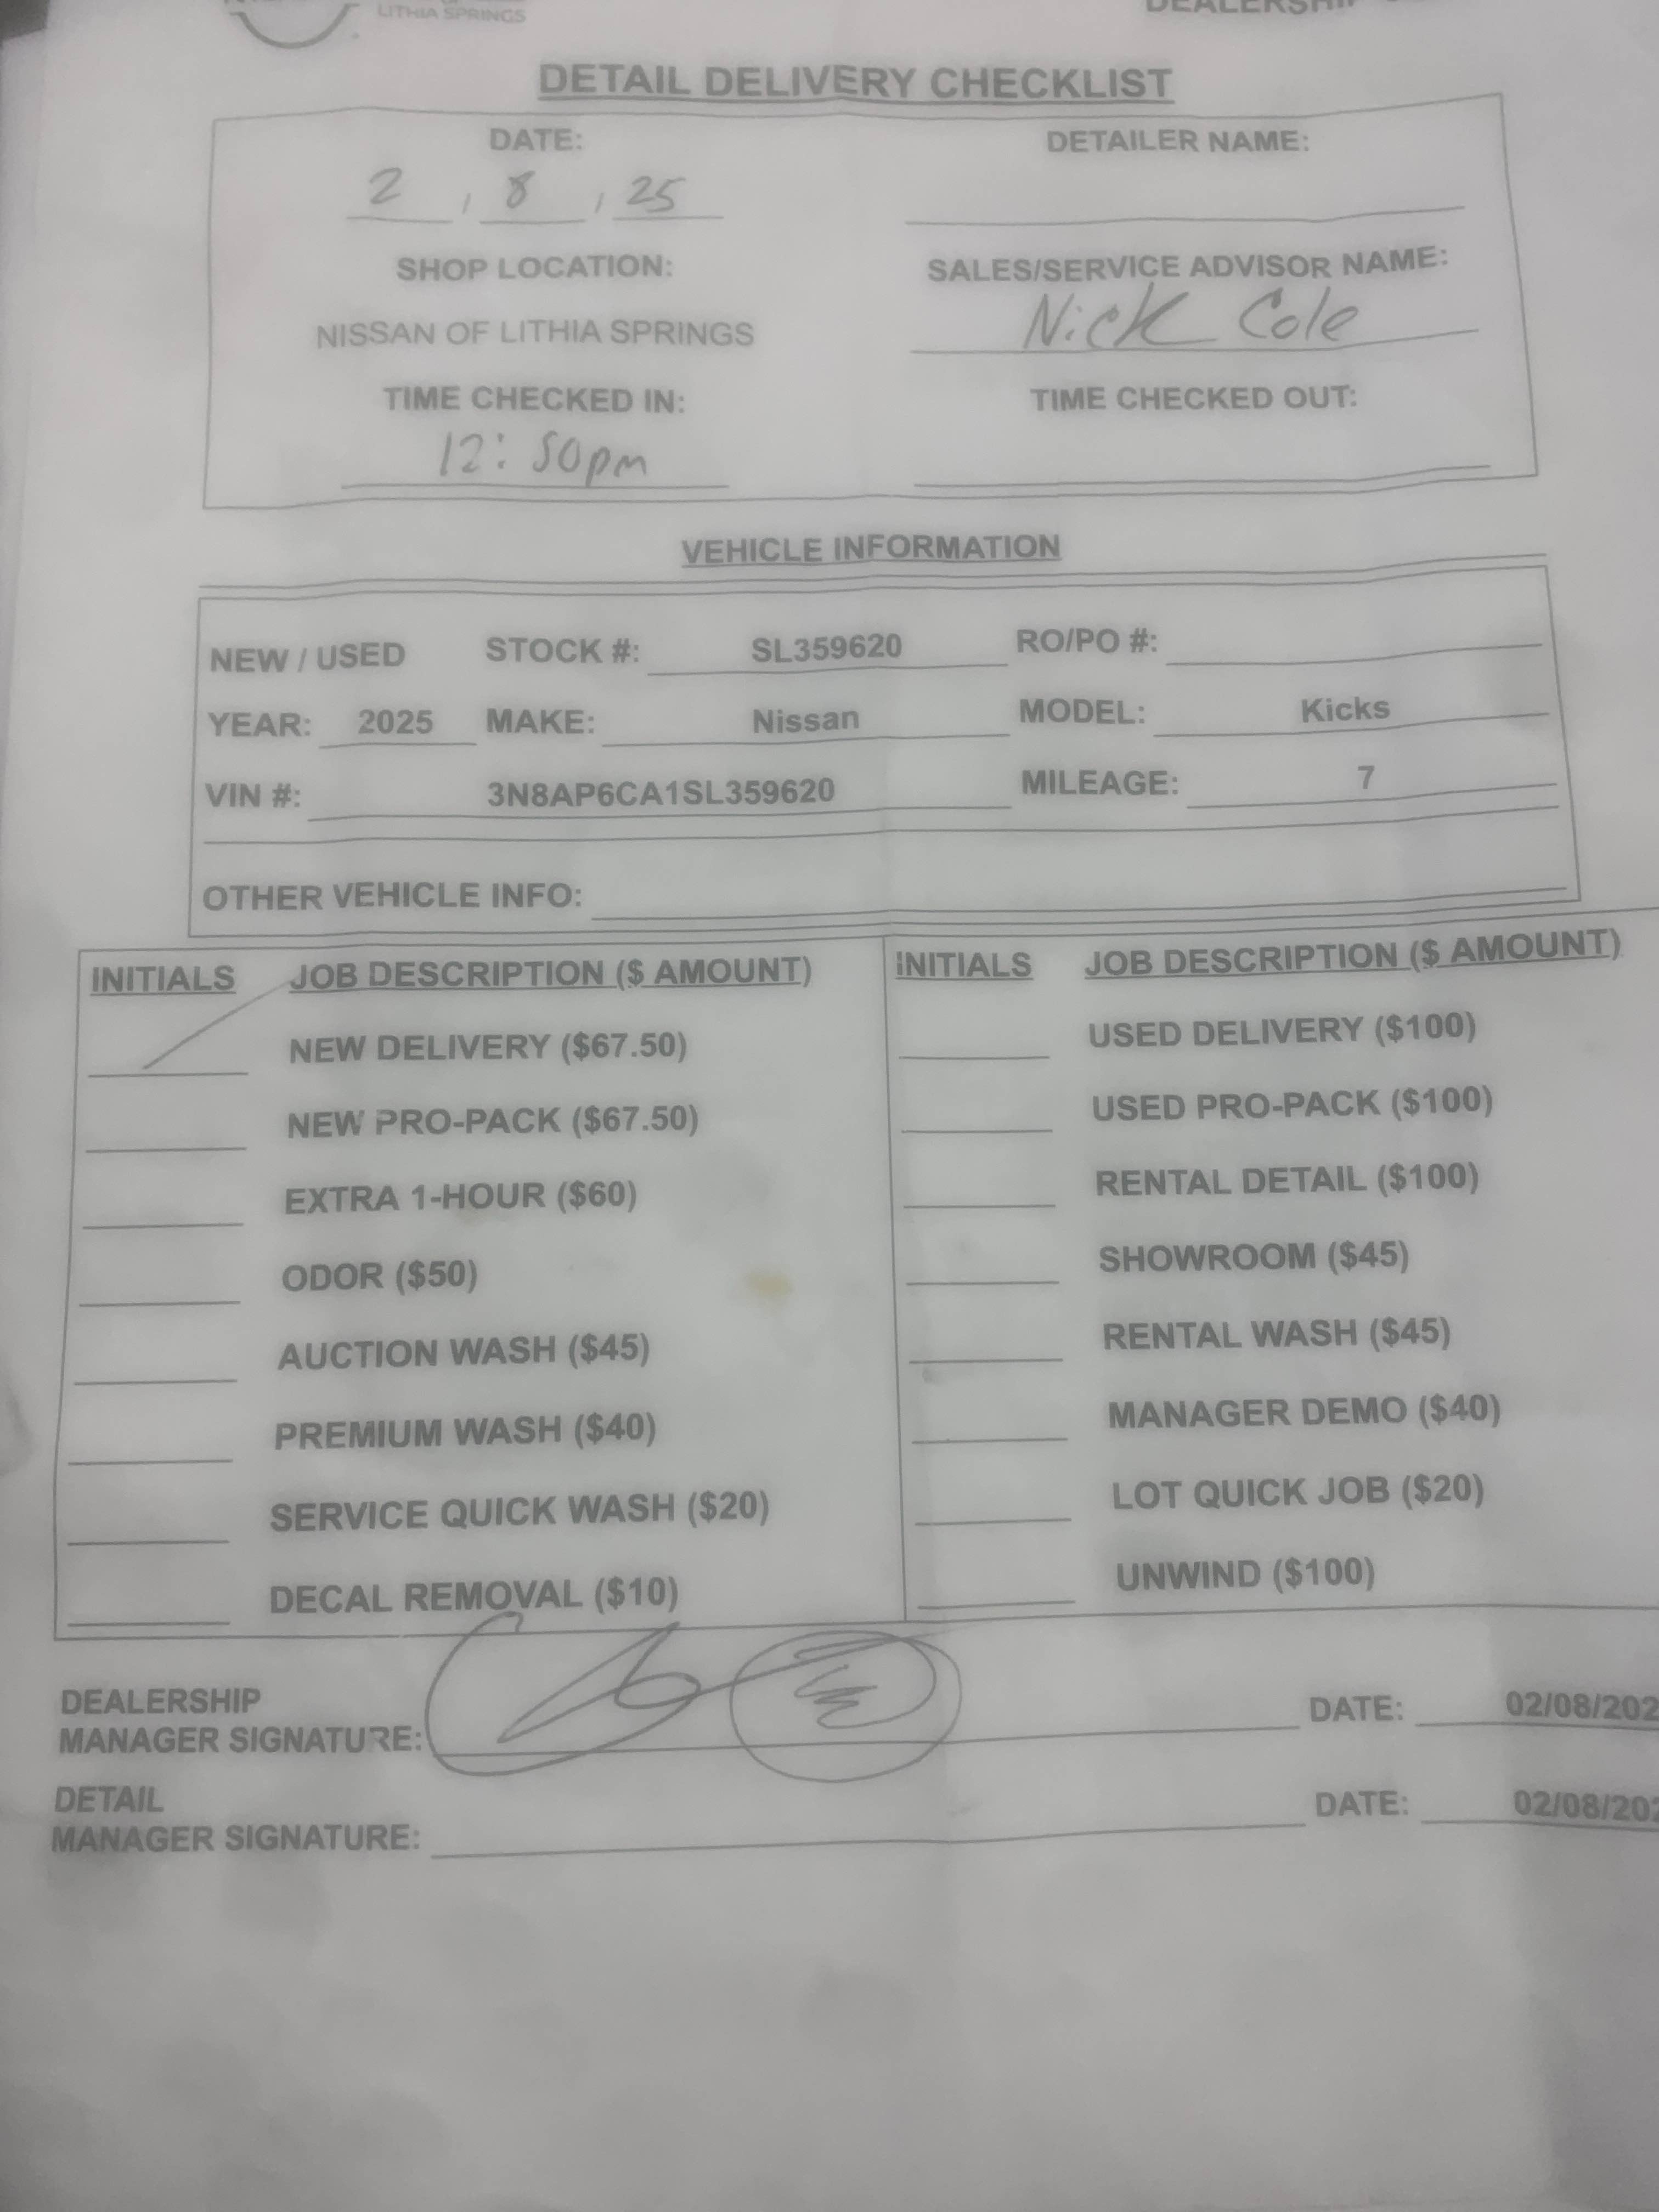 LITHIA SPRINGS
DEALERSHIP
DETAIL DELIVERY CHECKLIST
DATE: DETAILER NAME:
2 , 8 , 25
SHOP LOCATION: SALES/SERVICE ADVISOR NAME:
NISSAN OF LITHIA SPRINGS Nick Cole
TIME CHECKED IN: TIME CHECKED OUT:
12:50pm
VEHICLE INFORMATION
NEW / USED STOCK #: SL359620 RO/PO #:
YEAR: 2025 MAKE: Nissan MODEL: Kicks
VIN #: 3N8AP6CA1SL359620 MILEAGE: 7
OTHER VEHICLE INFO:
INITIALS JOB DESCRIPTION ($ AMOUNT) INITIALS JOB DESCRIPTION ($ AMOUNT)
NEW DELIVERY ($67.50) USED DELIVERY ($100)
NEW PRO-PACK ($67.50) USED PRO-PACK ($100)
EXTRA 1-HOUR ($60) RENTAL DETAIL ($100)
ODOR ($50) SHOWROOM ($45)
AUCTION WASH ($45) RENTAL WASH ($45)
PREMIUM WASH ($40) MANAGER DEMO ($40)
SERVICE QUICK WASH ($20) LOT QUICK JOB ($20)
DECAL REMOVAL ($10) UNWIND ($100)
DEALERSHIP
MANAGER SIGNATURE: DATE: 02/08/202
DETAIL
MANAGER SIGNATURE: DATE: 02/08/202